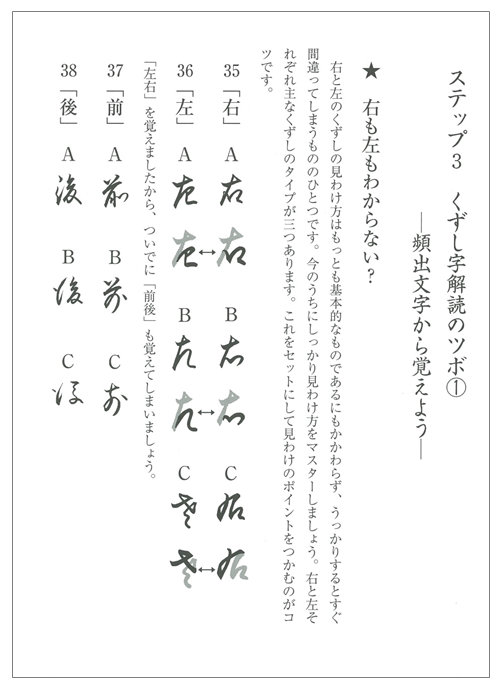 ステップ3 くずし字解読のツボ①
―頻出文字から覚えよう―
★ 右も左もわからない？
右と左のくずしの見わけ方はもっとも基本的なものであるにもかかわらず、うっかりするとすぐ
間違ってしまうもののひとつです。今のうちにしっかり見わけ方をマスターしましょう。右と左そ
れぞれ主なくずしのタイプが三つあります。これをセットにして見わけのポイントをつかむのがコ
ツです。
35「右」 A 右 右 B 右 右 C 右 右
36「左」 A 左 左 B 左 左 C 左 左
「左右」を覚えましたから、ついでに「前後」も覚えてしまいましょう。
37「前」 A 前 B 前 C 前
38「後」 A 後 B 後 C 後